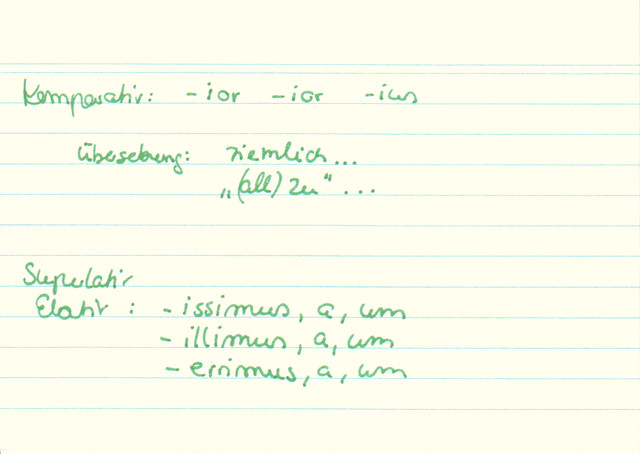 Komparativ: -ior -ior -ius
Übersetzung: ziemlich...
„(all) zu" ...
Superlativ
Elativ : - issimus, a, um
- illimus, a, um
- errimus, a, um